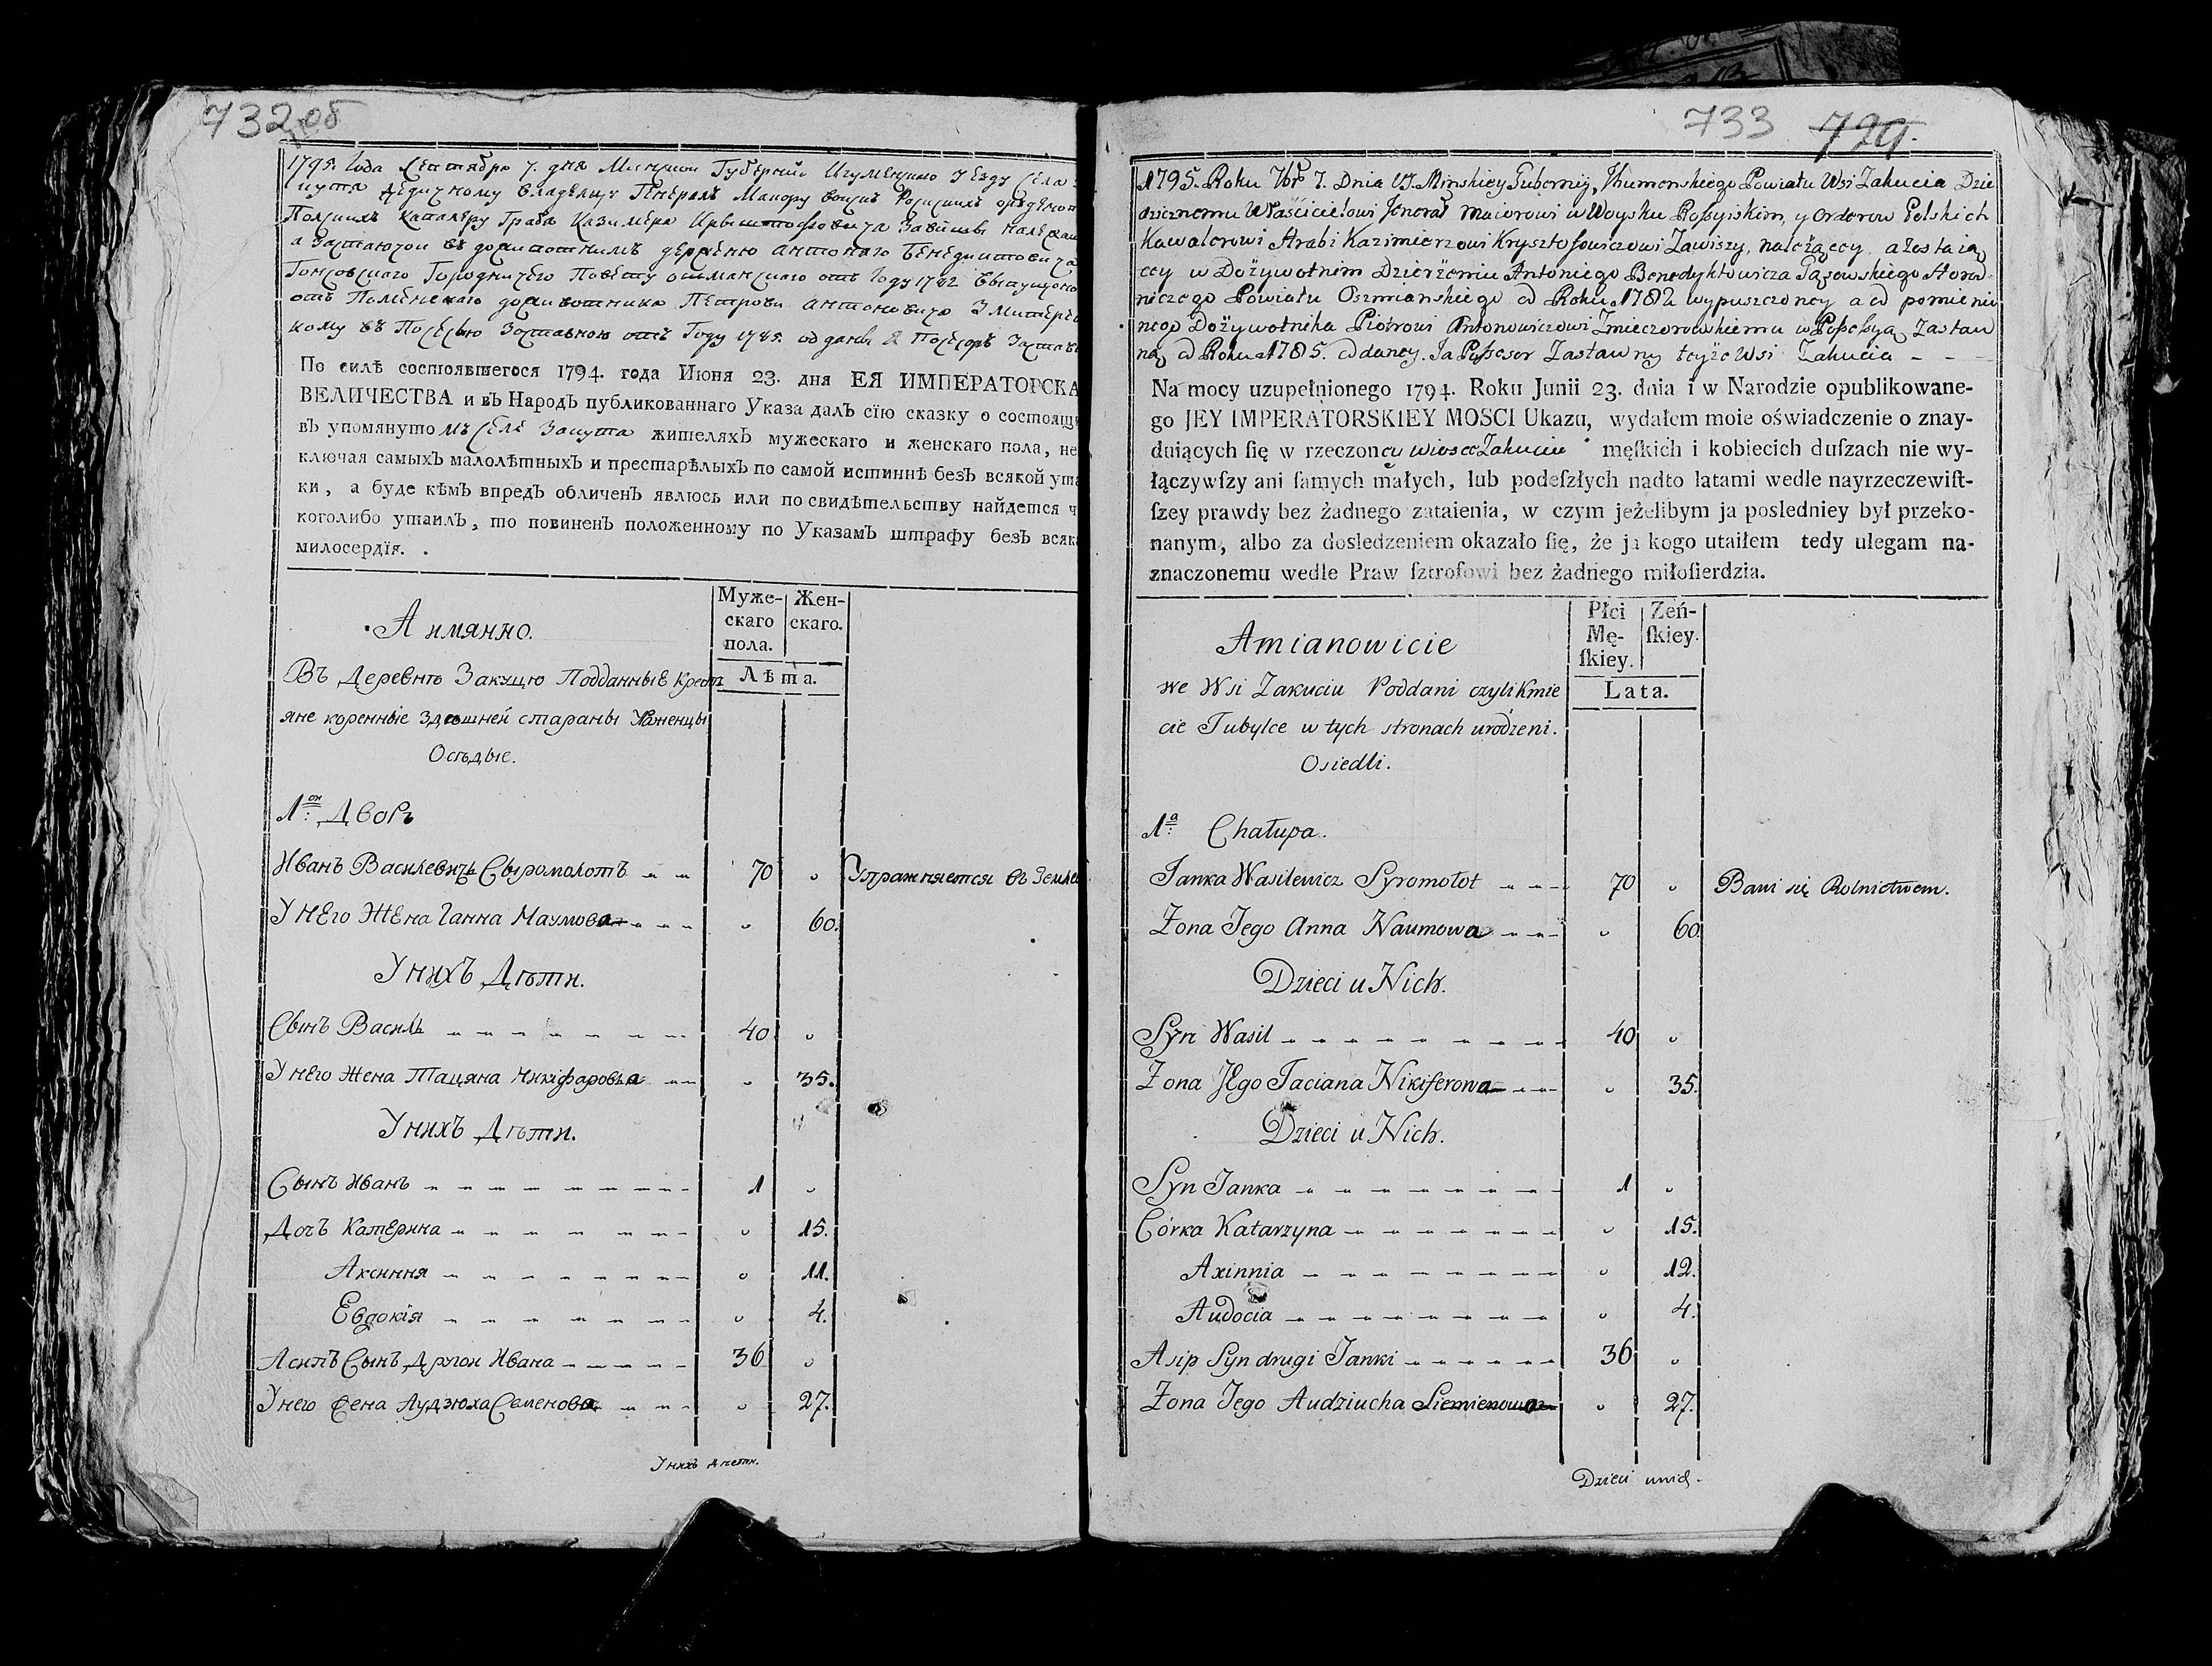 732 об
1795. Года Сентября 7. дня Минской Губернии Игуменскаго Уезду Села
кутя Дедичному владельцу Генералъ Маиору войскъ Росискихъ ордѣновъ
Полскихъ Кавалеру Графа Казимера Крыштофовича Завишы належащ
а Застаючои въ дожывотнимъ держеню Антонаго Бенедиктовича
Городничего Повѣту Ошмянскаго отъ Году 1782 выпущоно
отъ Помененаго дожывотника Петрови Антоновичо Змитеро
кому въ Посесыю Заставною отъ Году 1785. од даны Я Посесоръ Застав
По силѣ состоявшегося 1794. года Июня 23. дня ЕЯ ИМПЕРАТОРСКА
ВЕЛИЧЕСТВА и въ Народъ публикованнаго Указа далъ сїю сказку о состоящи
въ упомянуто мъ Селе Закутя жителяхъ мужескаго и женскаго пола, не
ключая самыхъ малолѣтныхъ и престарѣлыхъ по самой истиннѣ безъ всякой ута
ки, а буде кѣмъ впредъ обличенъ явлюсь или по свидѣтельству найдется ч
коголибо утаилъ, то повиненъ положенному по Указамъ штрафу безъ всяк
милосердїя.
А имянно.
Муже-
скаго
пола.
Жен-
скаго.
Лѣта.
Въ Деревнѣ Закуцю Подданные Крестъ
яне коренные Здѣшней стараны Уроженцы
Осѣдые.
1он: Дворъ
Иванъ Василевичъ Сыромолотъ 70 Упражняется въЗемле
У него Жена Ганна Наумова 60.
У нихъ Дѣти.
Сынъ Василь 40
У него Жена Тацяна Никіфарова 35.
У нихъ Дѣти.
Сынъ Иванъ 1
Дочъ Катерина 15.
Аксиння 11.
Евдокія 4.
Асипъ Сынъ Другой Ивана 36
У него Жена Аудзюха Семенова 27.
У нихъ дѣти.
733 729.
1795. Roku 7br 7. Dnia W. Minskiey Gubernij, Ihumenskiego Powiatu Wsi Zakucia Dzie
dzicznemu Właścicielowi Jenerał Maiorowi w Woysku Rossyiskim, y Orderow Polskich
Kawalerowi Hrabi Kazimierzowi Krysztofowiczowi Zawiszy, należącey, a zostaią
cey w Dożywotnim Dzierżeniu Antoniego Benedyktowicza Horod-
niczego Powiatu Oszmianskiego od Roku 1782 wypuszczoney a od pomienio
nego Dożywotnika Piotrowi Antonowiczowi Zmieczorowskiemu w Possessyą Zastaw
ną od Roku 1785. oddaney. Ja Possesor Zastawny teyże Wsi Zakucia
Na mocy uzupełnionego 1794. Roku Junii 23. dnia i w Narodzie opublikowane-
go JEY IMPERATORSKIEY MOSCI Ukazu, wydałem moie oświadczenie o znay-
duiących ſię w rzeczoney wiosce Zakuciu męſkich i kobiecich duſzach nie wy-
łączywſzy ani ſamych małych, lub podeſzłych nadto latami wedle nayrzeczewiſt-
ſzey prawdy bez żadnego zataienia, w czym jeżelibym ja posledniey był przeko-
nanym, albo za dosledzeniem okazało ſię, że ja kogo utaiłem tedy ulegam na-
znaczonemu wedle Praw ſztrofowi bez żadnego miłoſierdzia.
Amianowicie
Płci
Mę-
ſkiey.
Zeń-
ſkiey.
Lata.
we Wsi Zakuciu Poddani czyli Kmie
cie Tubylce w tych stronach urodzeni.
Osiedli.
1a: Chałupa.
Janka Wasilewicz Syromołot 70 Bawi się Rolnictwem.
Żona Jego Anna Naumowa 60
Dzieci u Nich.
Syn Wasil 40
Żona Jego Taciana Nikiferowa 35.
Dzieci u Nich.
Syn Janka 1
Córka Katarzyna 15.
Axinnia 12.
Audocia 4.
Asip Syn drugi Janki 36
Żona Jego Audziucha Siemienowa 27.
Dzieci u nich.